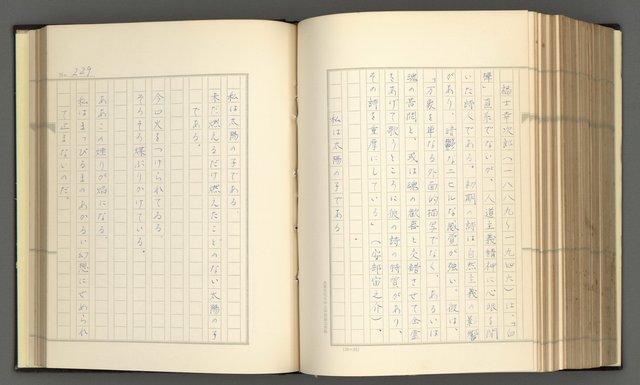 福士幸次郎（一八八九～一九四六）は、「白
樺」直系でないが、人道主義精神に心眼を開
いた詩人である。初期の詩は自然主義の影響
があり、暗鬱なニヒルな感覚が強い。彼は、
「万象を単なる外面的描写でなく、あるいは
魂の苦悶と、或は魂の歓喜と交錯させて全霊
をあげて歌うところに彼の詩の特質があり、
その詩を重厚にしている」（安部宙之介）。
私は太陽の子である
No. 229
私は太陽の子である
未だ燃えるだけ燃えたことのない太陽の子
である。
今口火をつけられてゐる
そろそろ煤ぶりかけている。
ああこの煙りが焔になる。
私はまっぴるまのあかるい幻想にせめられ
て止まないのだ。
(20×20)